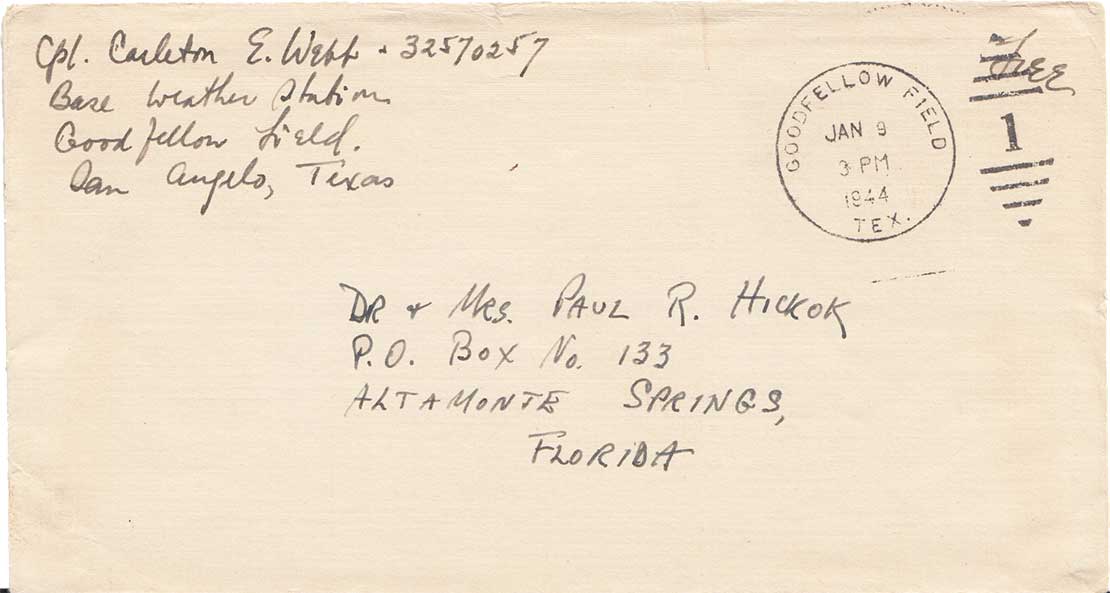 Cpl. Carleton E. Webb - 32570257
Base Weather Station
Goodfellow Field.
San Angelo, Texas
GOODFELLOW FIELD
JAN 9
3 PM
1944
TEX.
Free
1
DR + MRS. PAUL R. HICKOK
P.O. BOX No. 133
ALTAMONTE SPRINGS,
FLORIDA